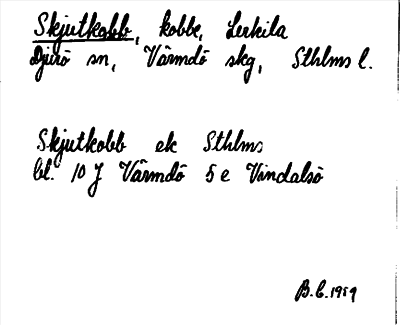 Skjutkobb, kobbe, Lerkila
Djurö sn, Värmdö skg, Sthlms l.
Skjutkobb ek Sthlms
bl. 10 J Värmdö 5 e Vindalsö
B.C. 1959